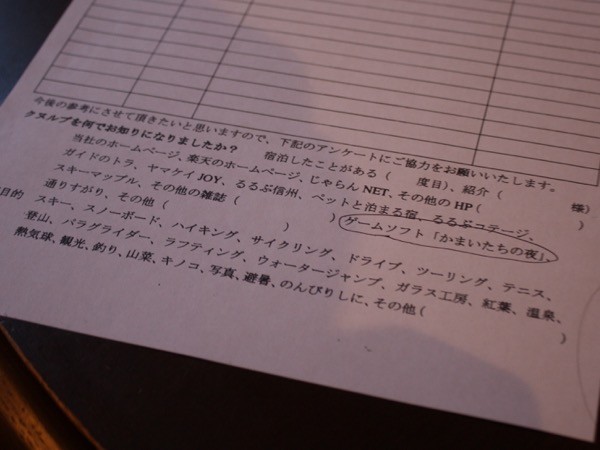 今後の参考にさせて頂きたいと思いますので、下記のアンケートにご協力をお願いいたします。
クヌルプを何でお知りになりましたか？　宿泊したことがある（　度目）、紹介（　様）
当社のホームページ、楽天のホームページ、じゃらんNET、その他のHP（　）
ガイドのトラ、ヤマケイJOY、るるぶ信州、ペットと泊まる宿、るるぶコテージ、
スキーマップル、その他の雑誌（　）ゲームソフト「かまいたちの夜」、
通りすがり、その他（　）
目的　スキー、スノーボード、ハイキング、サイクリング、ドライブ、ツーリング、テニス、
登山、パラグライダー、ラフティング、ウォータージャンプ、ガラス工房、紅葉、温泉、
熱気球、観光、釣り、山菜、キノコ、写真、避暑、のんびりしに、その他（　）